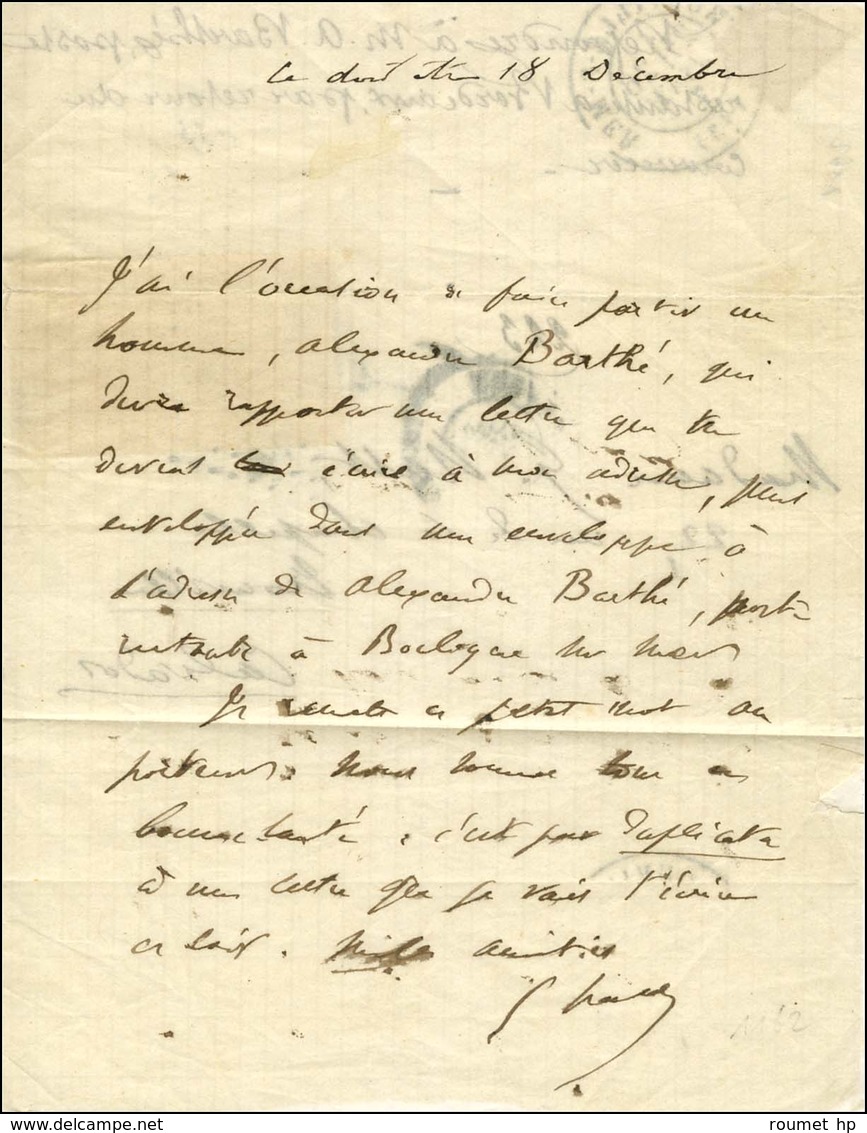 ce 18 Décembre
J'ai l'occasion de faire partir un
homme, Alexandre Barthé, qui
devra rapporter une lettre que tu
devras écrire à mon adresse, puis
enveloppée dans une enveloppe à
l'adresse de Alexandre Barthé, poste
restante à Boulogne sur mer
Je remets ce petit mot au
porteur. Nous sommes tous en
bonne santé, c'est pour duplicata
à une lettre que je vais t'écrire
ce soir. Mille amitiés
1162
roumet hp